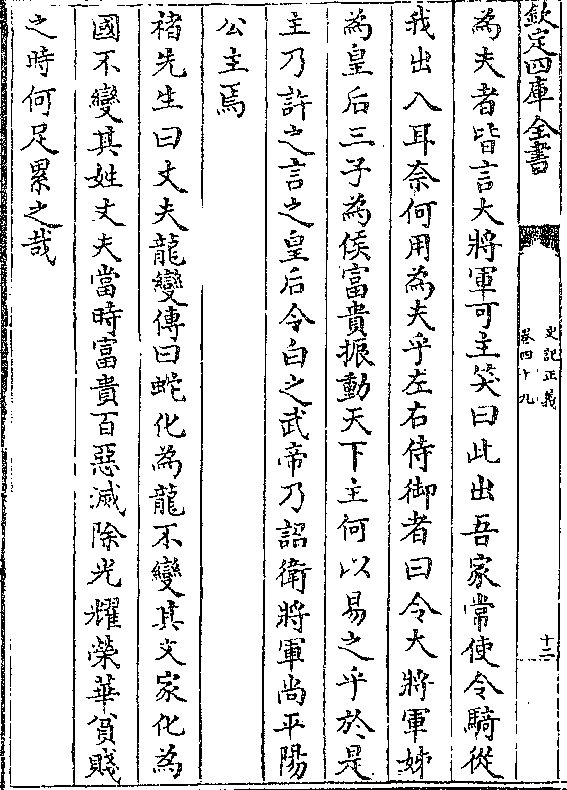 欽定四庫全書
史記正義
卷四十九
十二
為夫者皆言大將軍可主笑曰此出吾家常使令騎從
我出入耳奈何用為夫乎左右侍御者曰今大將軍姊
為皇后三子為侯富貴振動天下主何以易之乎於是
主乃許之言之皇后令白之武帝乃詔衛將軍尚平陽
公主焉
褚先生曰丈夫龍變傳曰蛇化為龍不變其文家化為
國不變其姓丈夫當時富貴百惡滅除光耀榮華貧賤
之時何足累之哉